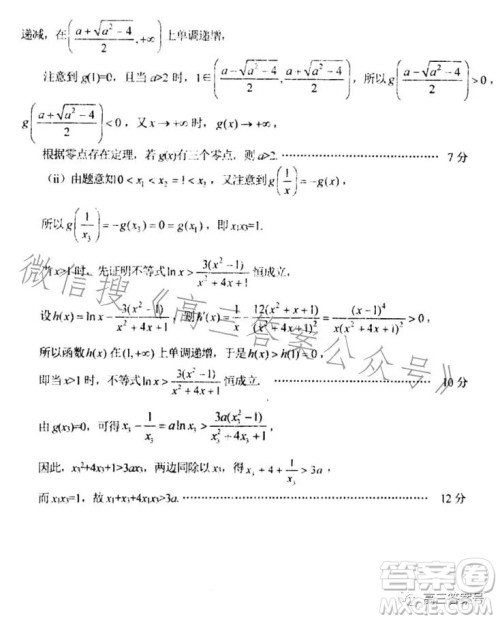 递减，在 (a+√(a²−4)/2, +∞) 上单调递增，
注意到 g(1)=0，且当 a>2 时，1∈(a−√(a²−4)/2, a+√(a²−4)/2)，所以 g(a−√(a²−4)/2)>0，
g(a+√(a²−4)/2)<0，又 x→+∞ 时，g(x)→+∞，
根据零点存在定理，若 g(x)有三个零点，则 a>2. ……………… 7 分
（ii）由题意知 0<x₁<x₂=1<x₃，又注意到 g(1/x)=−g(x)，
所以 g(1/x₃)=−g(x₃)=0=g(x₁)，即 x₁x₃=1.
当 x>1 时，先证明不等式 ln x>3(x²−1)/(x²+4x+1) 恒成立，
设 h(x)=ln x−3(x²−1)/(x²+4x+1)，则 h′(x)=1/x−12(x²+x+1)/(x²+4x+1)²=(x−1)⁴/x(x²+4x+1)²>0，
所以函数 h(x) 在(1,+∞) 上单调递增，于是 h(x)>h(1)=0，
即当 x>1 时，不等式 ln x>3(x²−1)/(x²+4x+1) 恒成立. ……………… 10 分
由 g(x₃)=0，可得 x₃−1/x₃=a ln x₃>3a(x₃²−1)/(x₃²+4x₃+1)，
因此，x₃²+4x₃+1>3ax₃，两边同除以 x₃，得 x₃+4+1/x₃>3a，
而 x₁x₃=1，故 x₁+x₃+4x₁x₃>3a. ……………… 12 分
微信搜《高三答案公众号》
答案圈
MXQE.COM
高三答案号